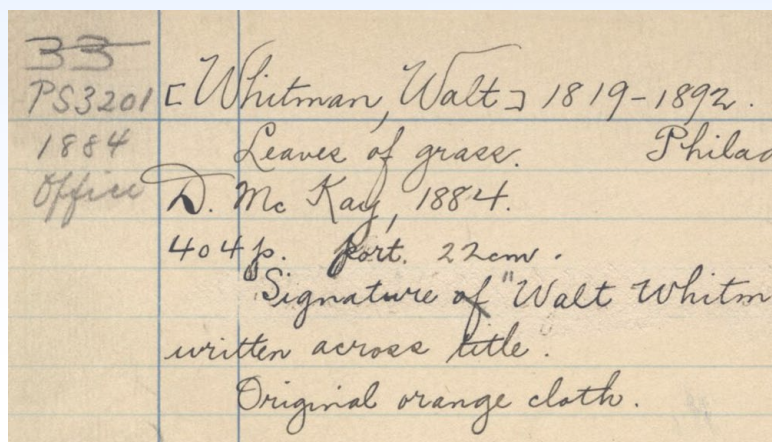 33
PS3201 [Whitman, Walt] 1819-1892.
1884 Leaves of grass. Philad
Office D. McKay, 1884.
404p. port. 22cm.
"Signature of "Walt Whitm
written across title.
Original orange cloth.